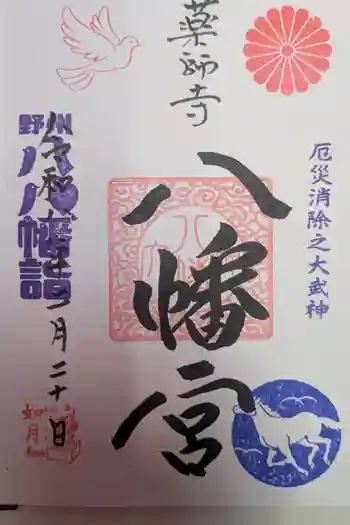 薬師寺
八幡宮
厄災消除之大武神
野州
八幡詣
二月二十日
如月